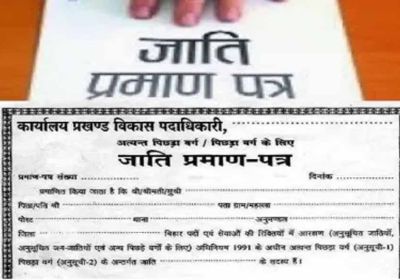 जाति
प्रमाण पत्र
कार्यालय प्रखण्ड विकास पदाधिकारी,
अत्यन्त पिछड़ा वर्ग / पिछड़ा वर्ग के लिए
जाति प्रमाण-पत्र
प्रमाण-पत्र संख्या दिनांक
प्रमाणित किया जाता है कि श्री/श्रीमती/सुश्री
पिता/पति श्री पता ग्राम/महल्ला
पोस्ट थाना अनुमण्डल
जिला बिहार पदों एवं सेवाओं की रिक्तियों में आरक्षण (अनुसूचित जातियों,
अनुसूचित जन-जातियों एवं अन्य पिछड़े वर्गों के लिए) अधिनियम 1991 के अधीन अत्यन्त पिछड़ा वर्ग (अनुसूची-1)
पिछड़ा वर्ग (अनुसूची-2) के अन्तर्गत जाति के सदस्य हैं।